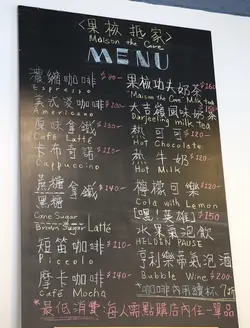 <果核抵家>
Maison the Core
MENU
濃縮咖啡 $90-
Espresso
美式淡咖啡 $100-
Americano
原味拿鐵 $130-
Café Latte
卡布奇諾 $110-
Cappuccino
蔗糖
黑糖 拿鐵 $140-
Cane Sugar
Brown Sugar Latte
短笛咖啡 $110-
Piccolo
摩卡咖啡 $140-
Café Mocha
果核功夫奶茶 $160
Maison the Core Milk tea
大吉嶺風味奶茶
Darjeeling milk Tea
熱可可 $120-
Hot Chocolate
熱牛奶 $120-
Hot Milk
檸檬可樂 $120-
Cola with Lemon
[嘿!英雄] $150
水果氣泡飲
HELDEN PAUSE
亨利樂蒂氣泡酒
Bubble Wine $200-
*咖啡內用讓杯
*最低消費:每人需點購店內任一單品